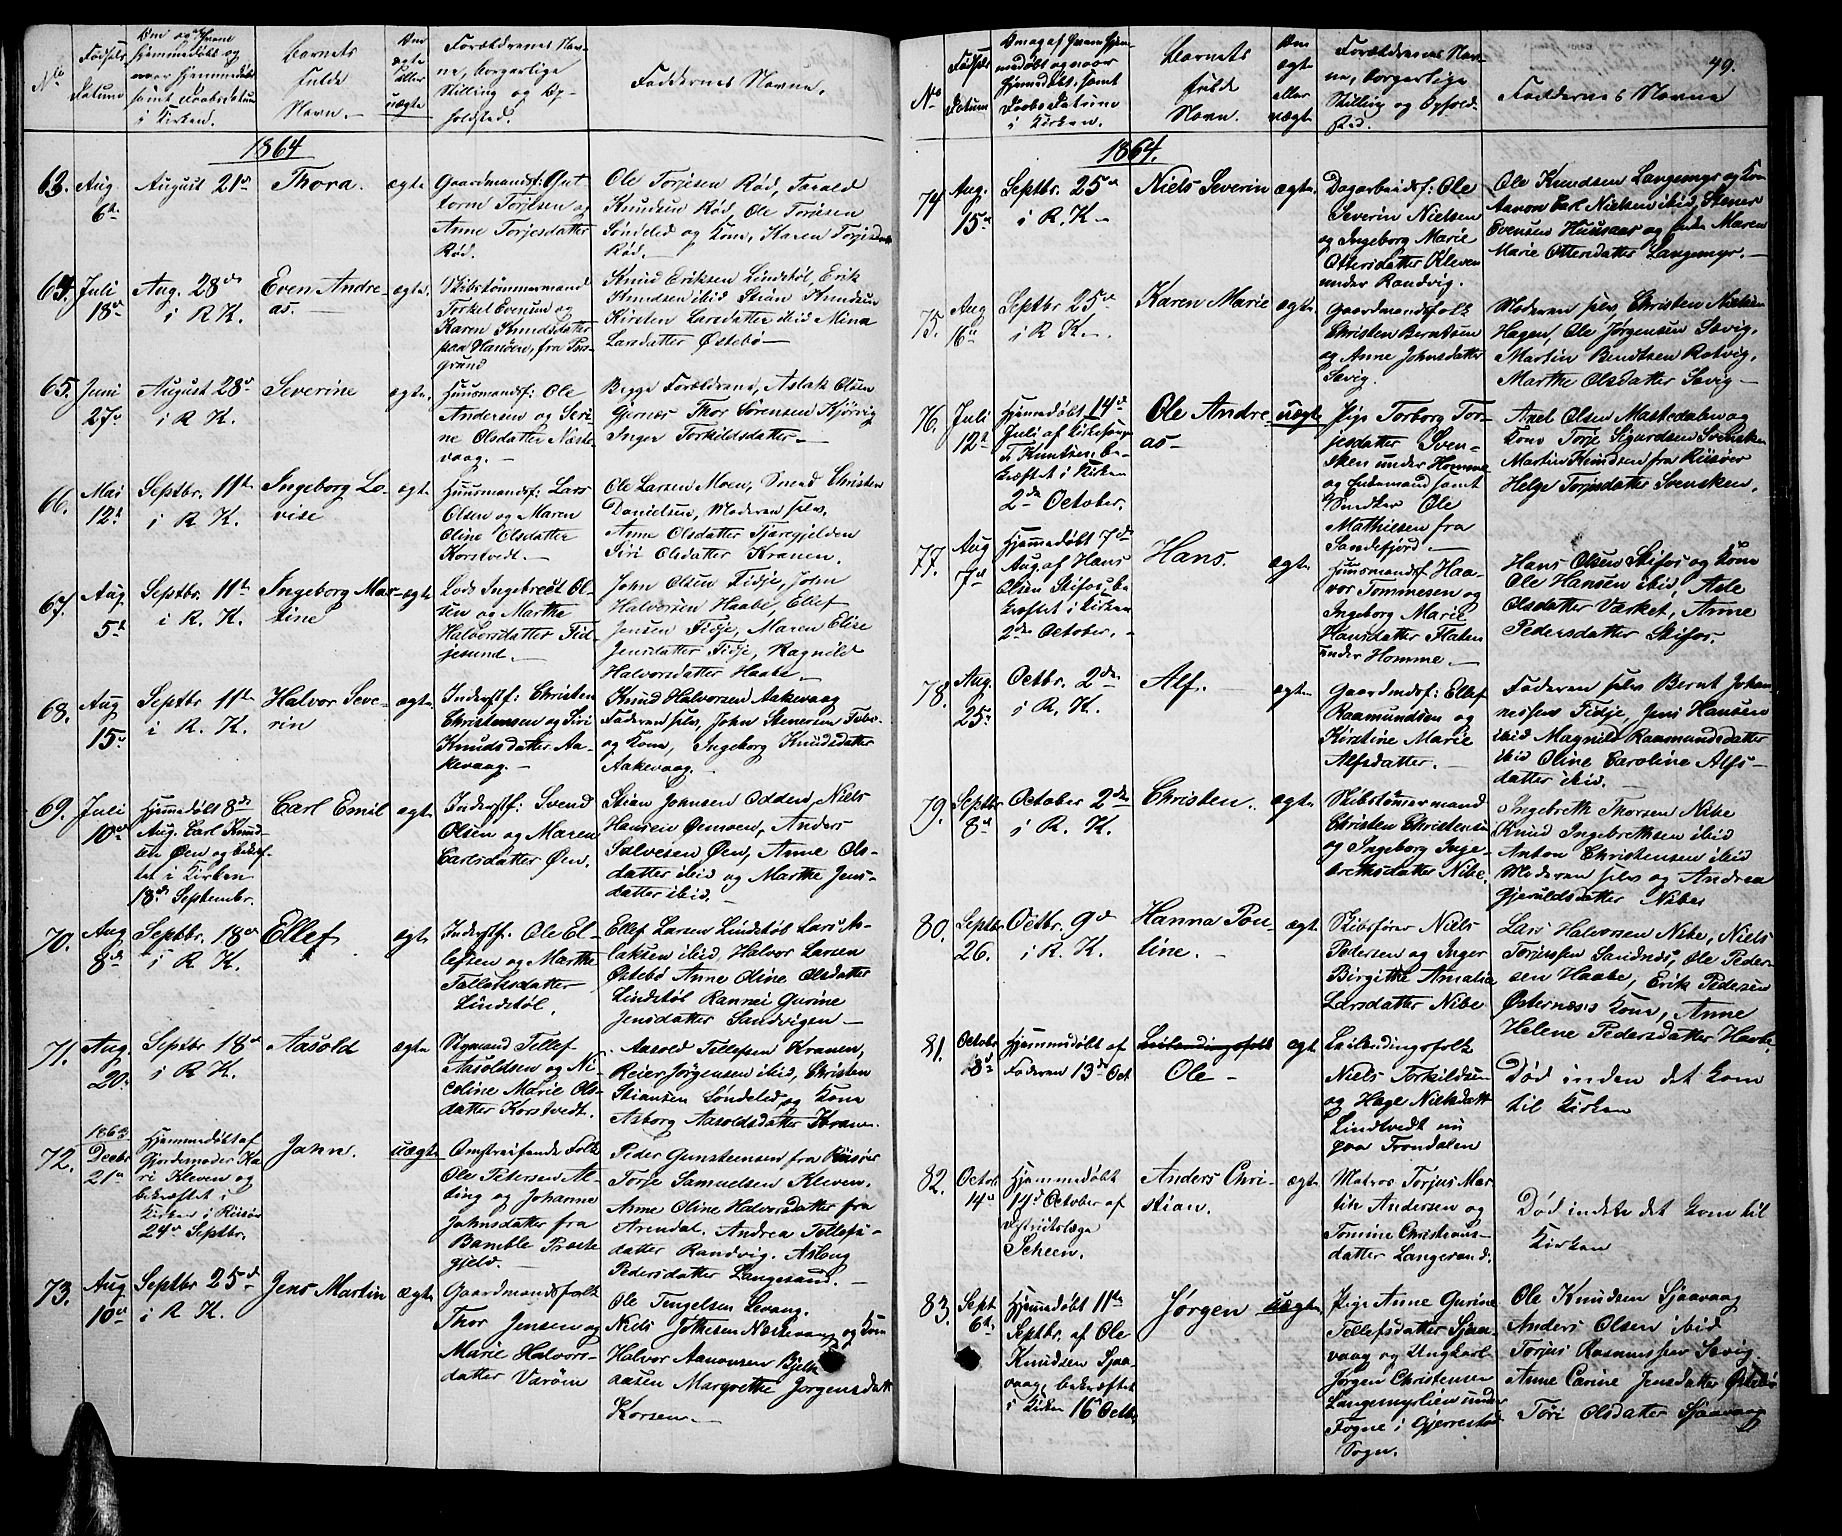 No
Fødsels
Datum
Barnets
fulde
Navn.
ægte
eller
uægte
Forældrenes Nav-
ne, borgerlige
Stilling og Op-
holdsted.
Faddernes Navne.
1864
63.
Aug.
6te
August 21de
Thora.
ægte
Gaardmandsf: Gut
torm Torjesen og
Anne Torjesdatter
Rød.
Ole Torjesen Rød, Tarald
Knudsen Rød, Ole Torjesen
Søndeled og Kone, Karen Torjesdatter
Rød.
64.
Juli
18de
Aug. 28de
i R K.
Even Andre-
as.
ægte.
Skibstømmermand
Torkel Evensen og
Karen Knudsdatter
paa Hanøen, fra Pors-
grund
Knud Eriksen Lindstøl, Erik
Knudsen ibid Stian Knudsen
Kirsten Larsdatter ibid Mina
Larsdatter Østebø
65.
Juni
27de
August 28de
i R. K.
Severine
ægte.
Huusmandsf: Ole
Andersen og Seri-
ne Olsdatter Næste-
vaag.
Begge Forældrene, Aslak Olsen
Gjernæs Thor Sørensen Kjørvig
Inger Torkildsdatter
66.
Mai
12te
Septbr. 11te
i R K.
Ingeborg Lo-
vise
ægte
Huusmandsf: Lars
Olsen og Maren
Oline Olsdatter
Korstvedt.
Ole Larsen Moen, Smed Christen
Danielsen, Moderen selv,
Anne Olsdatter Tjæregjelden
Siri Olsdatter Kranen.
67.
Aug.
5te
Septbr. 11te
i R. K.
Ingeborg Mar-
tine
ægte
Lods Ingebredt Ol-
sen og Marthe
Halvorsdatter Fid-
jesund.
John Olsen Fidje, John
Halvorsen Haabe, Ellef
Jensen Fidje, Maren Elise
Jensdatter Fidje, Ragnild
Halvorsdatter Haabe.
68.
Aug
15de
Septbr 11te
i R. K.
Halvor Seve-
rin
ægte
Inderstf: Christen
Christensen og Siri
Knudsdatter Aa-
kevaag.
Knud Halvorsen Aakevaag
Faderen selv, John Stenersen
og Kone, Ingeborg Knudsdatter
Aakevaag.
69.
Juli
10de
Hjemmedøbt 8de
Aug. Carl Knud-
sen Øen og bekræf-
tet i Kirken
18de September.
Carl Emil
ægte
Inderstf: Svend
Olsen og Maren
Carlsdatter Øen.
Stian Johnsen Odden, Niels
Hansen Øemoen, Anders
Salvesen Øen, Anne Ols-
datter ibid og Marthe Jens-
datter ibid.
70.
Aug
8de
Septbr. 18de
i R K.
Ellef
ægte
Inderstf: Ole El-
lefsen og Marthe
Tellefsdatter
Lindstøl.
Ellef Larsen Lindstøl Lars As-
laksen ibid, Halvor Larsen
Østebø Anne Oline Olsdatter
Lindstøl Rannei Gurine
Jensdatter Sandvigen
71.
Aug.
20de
Septbr 18de
i R K.
Aasold
ægte
Styrmand Tellef
Aasoldsen og Ni-
coline Marie Ols-
datter Korstvedt.
Aasold Tellefsen Kranen,
Reier Jørgensen ibid, Christen
Stiansen Søndeled og Kone
Asborg Aasoldsdatter Kranen.
72.
1863
Decbr
21de
Hjemmedøbt af
Gjordemoder Ka-
ri Kleven og
bekræftet i
Kirken i Risøer
24de Septbr.
Jahn.
uægte
Omstreifende Folk
Ole Petersen
og Johanne
Jahnsdatter fra
Bamble Præste
gjeld.
Peder Gunstensen fra Riisøer
Torje Samuelsen Kleven.
Anne Oline Halvorsdatter fra
Arendal. Andrea Tellefs-
datter Randvig. Aslaug
Pedersdatter Langesand.
73.
Aug
10de
Septbr 25de
i R K.
Jens Martin
ægte
Gaardmandsfolk
Thor Jensen og
Marie Halvors-
datter Varøen
Ole Tengelsen Levang.
Niels Jothesen Næstevaag og Kone
Halvor Aanonsen Bjelk
aasen Margrethe Jørgensdatt
Korsen.
49.
No
Fødsels
Datum
Barnets
fulde
Navn.
ægte
eller
uægte
Forældrenes Nav-
ne, borgerlige
Stilling og Ophold-
sted.
Faddernes Navne
1864.
74
Aug.
15de
Septbr. 25de
i R. K.
Niels Severin
ægte.
Dagarbeidsf: Ole
Severin Nielsen
og Ingeborg Marie
Ottersdatter Kleven
under Randvig.
Ole Knudsen Langemyr og Kone
Aanon Carl Nielsen ibid, Stener
Evensen Huusaas og Enke Maren
Marie Ottersdatter Langemyr.
75.
Aug
16de
Septbr. 25de
i R K.
Karen Marie
ægte
Gaardmandsfolk
Christen Berntsen
og Anne Johnsdatter
Savig.
Moderen selv, Christen Nielsen
Hagen, Ole Jørgensen Savig,
Martin Bendtsen Rotvig,
Marthe Olsdatter Savig
76.
Juli
12te
Hjemmedøbt 14de
Juli af Kirkesanger
T. Knutsen be-
kræftet i Kirken
2de October.
Ole Andre
as
uægte
Pige Torborg Tor-
jesdatter Sven-
sken under Homme
og Enkemand samt
Snedker Ole
Mathiesen fra
Sandefjord.
Axel Olsen Mastedalen og
Kone Torje Sigurdsen Svensken
Martin Knudsen fra Riisøer
Helge Torjesdatter Svensken.
77.
Aug
7de
Hjemmedøbt 7de
Aug. af Hans
Olsen Stifos, be-
kræftet i Kirken
2de October.
Hans.
ægte
Huusmandsf Haa-
vor Tommesen og
Ingeborg Marie
Hansdatter Flaten
under Homme.
Hans Olsen Stifos og Kone
Ole Hansen ibid, Asle
Olsdatter Værket, Anne
Pedersdatter Stifos.
78.
Aug.
25de
Octbr. 2den
i R. K.
Alf.
ægte
Gaardmdsf: Ellef
Raamundsen og
Kirstine Marie
Alfsdatter.
Faderen selv Bernt Johan-
nessen Fidje, Jens Hansen
ibid Magnild Raamundsdatter
ibid Oline Caroline Alfs-
datter ibid.
79.
Septbr
8de
October 2den
i R. K.
Christen.
ægte
Skibstømermand
Christen Christensen
og Ingeborg Inge-
brethsdatter Nibe.
Ingebreth Thorsen Nibe
Knud Ingebrethsen ibid
Anton Christensen ibid
Moderen selv og Andrea
Gjeruldsdatter Nibe
80.
Septbr
26.
Octbr. 9de
i R. K.
Hanna Pou-
line.
ægte
Skibsfører Niels
Pedersen og Inger
Birgitte Amalia
Larsdatter Nibe
Lars Halvorsen Nibe, Niels
Torjussen Sandnes, Ole Peder-
sen Haabe, Erik Pedersen
Østernæs's Kone, Anne
Helene Pedersdatter Haabe.
81.
Octobr
8de
Hjemmedøbt af
Faderen 13de Oct
Leilendingsfolk
Ole
ægte
Leilendingsfolk
Niels Torkildsen
og Hage Nielsdatt
Lindtvedt nu
paa Trondalen
Død inden det kom
til Kirken
82.
Octob.
14de
Hjemmedøbt
14de October af
Districtslæge
Scheen.
Anders Chri-
stian.
ægte
Matros Torjus Mar
tin Andersen og
Tomine Christians-
datter Langesand.
Død inden det kom til
Kirken
83.
Sept
6te
Hjemmedøbt 11te
Septbr. af Ole
Knudsen Sjaa-
vaag, bekræftet
i Kirken 16de Octbr.
Jørgen
uægte
Pige Anne Gurine
Tellefsdatter Sjaa-
vaag og Ungkarl
Jørgen Christensen
Langemyrlien under
Fogne i Gjerrestad
Sogn.
Ole Knudsen Sjaavaag
Anders Olsen ibid
Torjus Rasmussen Savig
Anne Carine Jensdatter Østebø
Tori Olsdatter Sjaavaag